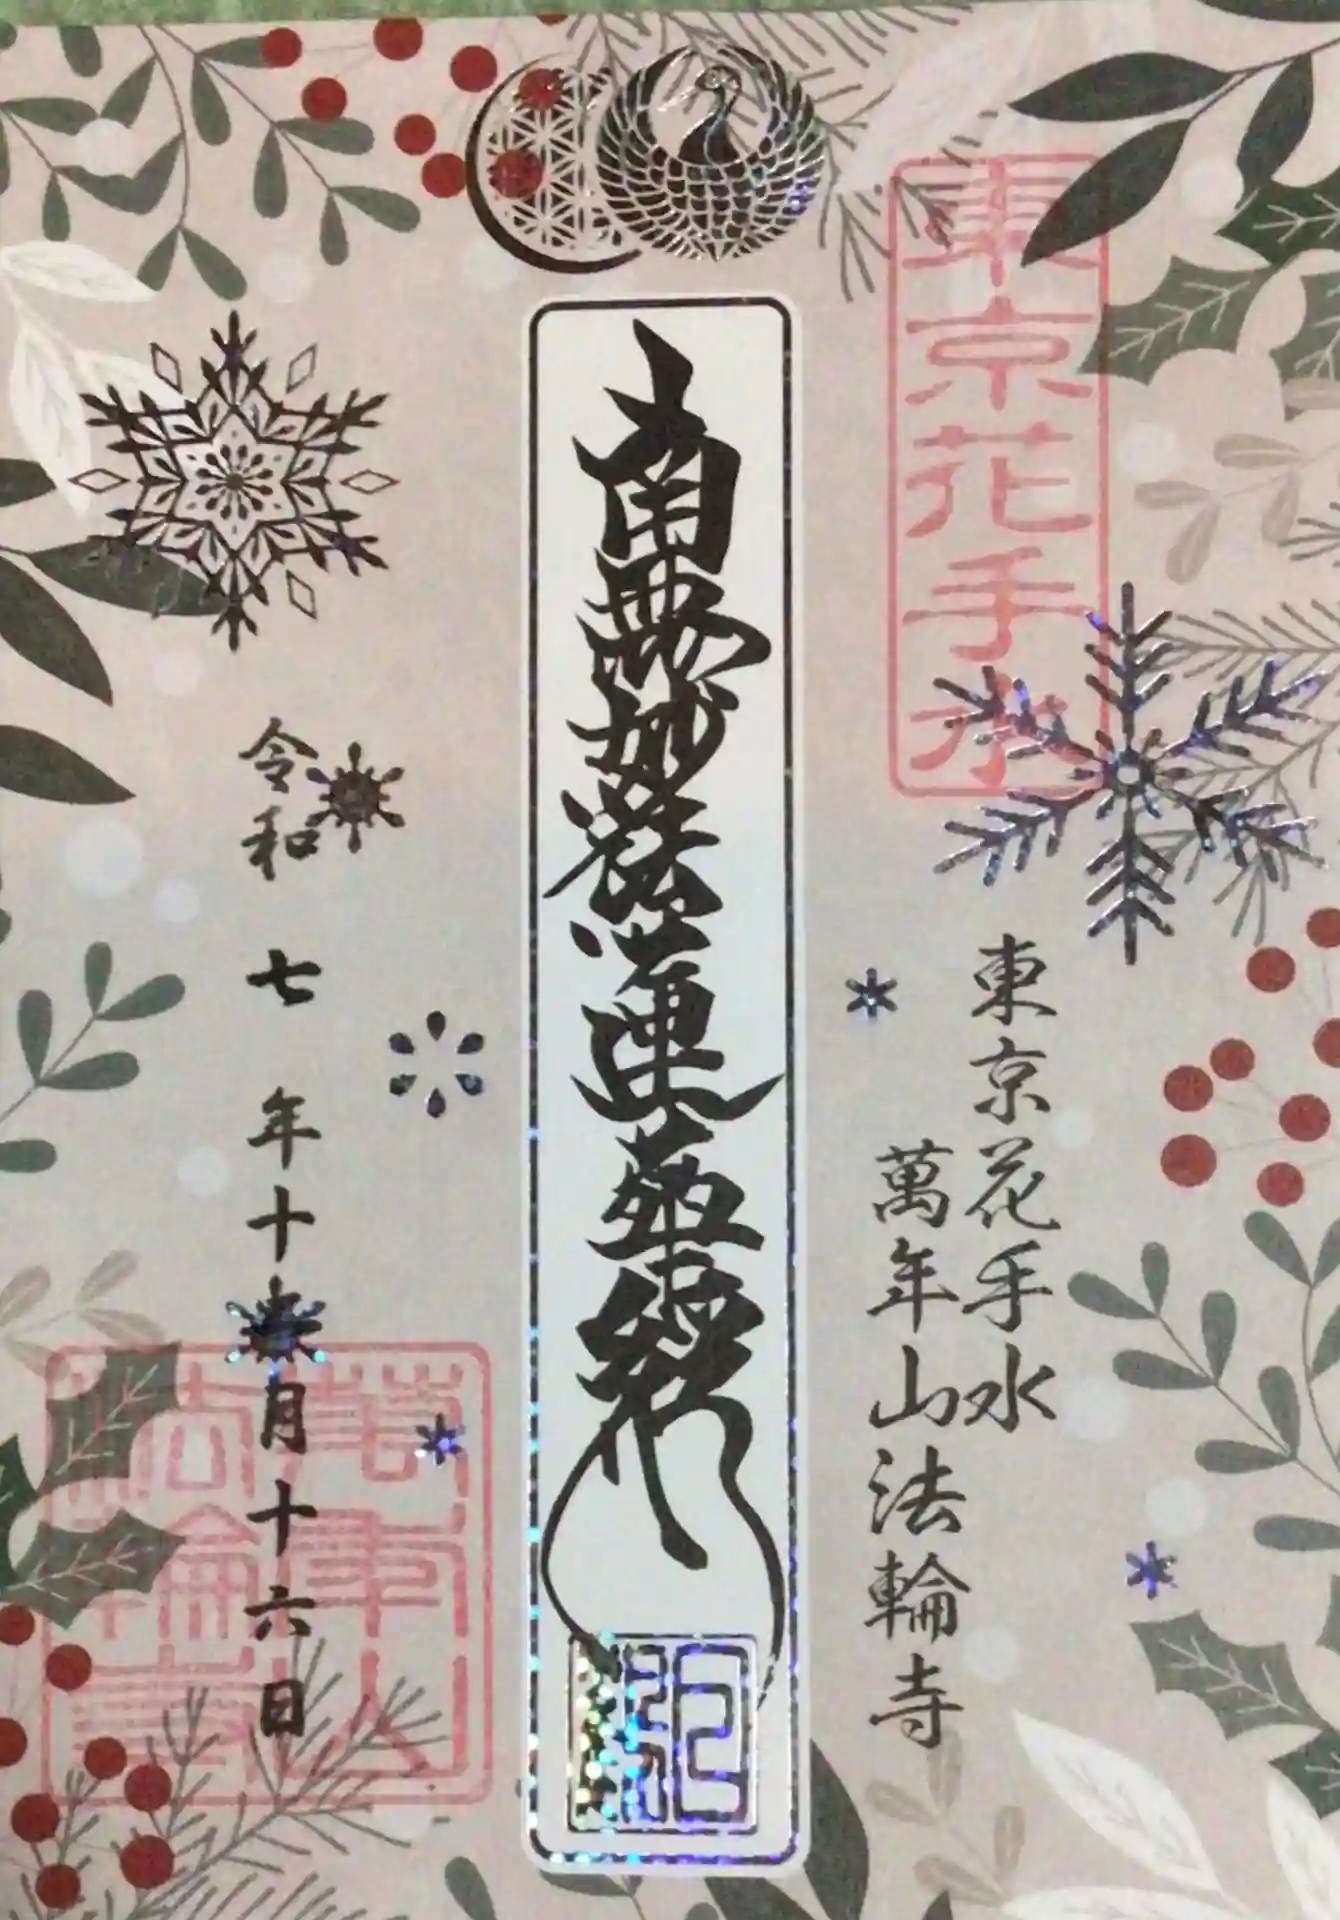 東京花手水
東京花手水
萬年山法輪寺
南無妙法蓮華経
令和七年十二月十六日
萬年山法輪寺